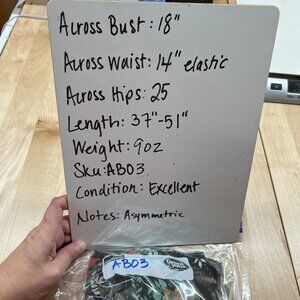 Across Bust: 18"
Across Waist: 14" elastic
Across Hips: 25
Length: 37"-51"
Weight: 9oz
Sku: AB03
Condition: Excellent
Notes: Asymmetric
AB03